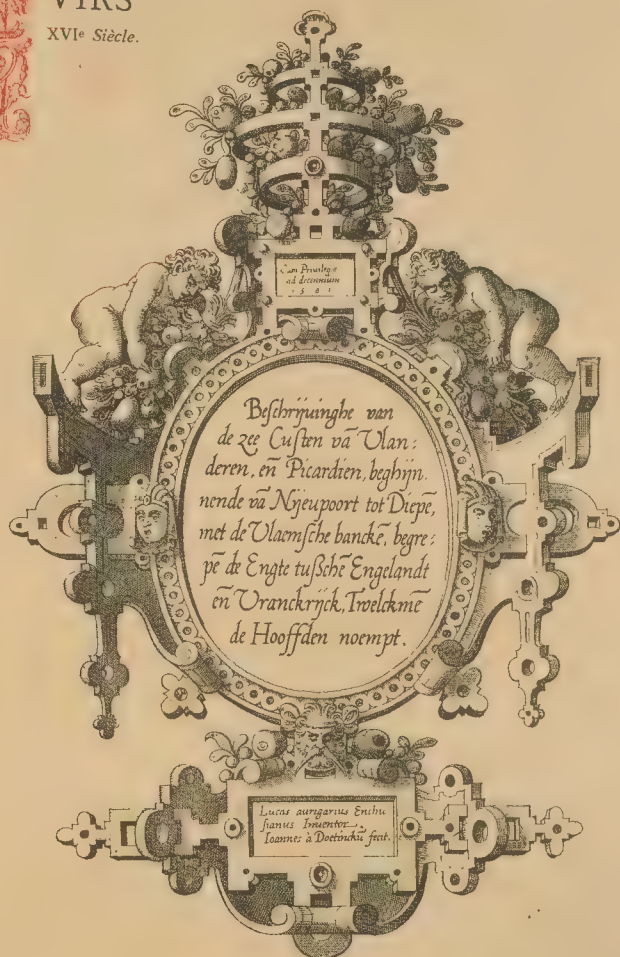 VIRS
XVIe Siècle.
Cum Privilegio
ad decennium
1581
Beſchrijuinghe van
de zee Cuſten vā Vlan:
deren, en̄ Picardien, beghijn.
nende vā Nijeupoort tot Diepē,
met de Vlaemſche banckē, begre:
pē de Engte tuſſchē Engelandt
en̄ Vranckrijck, Twelckmē
de Hooffden noempt.
Lucas aurigarius Enchu
ſianus Inventor.
Ioannes à Doetinchū fecit.